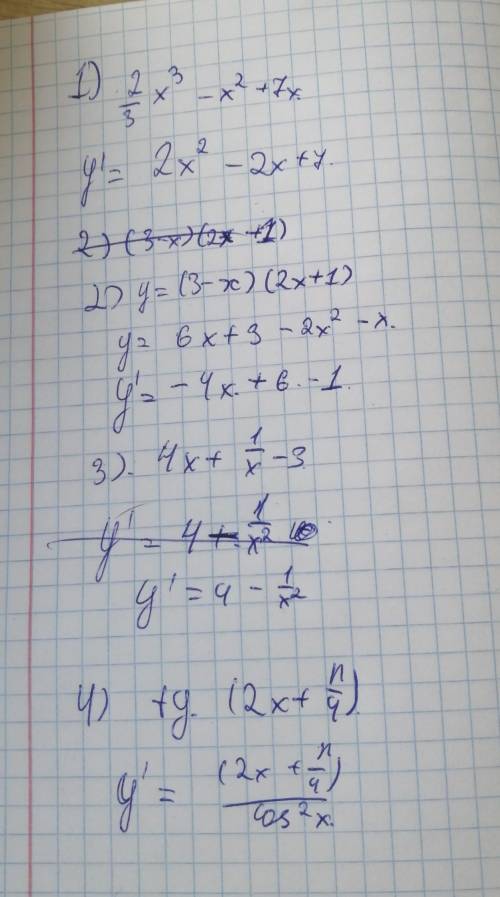 1) 2/3 x³ - x² + 7x.
y' = 2x² - 2x + 7.
2) (3-x)(2x+1)
2) y = (3-x)(2x+1)
y = 6x + 3 - 2x² - x.
y' = -4x. + 6. - 1.
3). 4x + 1/x - 3
y' = 4 - 1/x²
y' = 4 - 1/x²
4) tg. (2x + π/4).
y' = (2x + π/4) / cos²x.